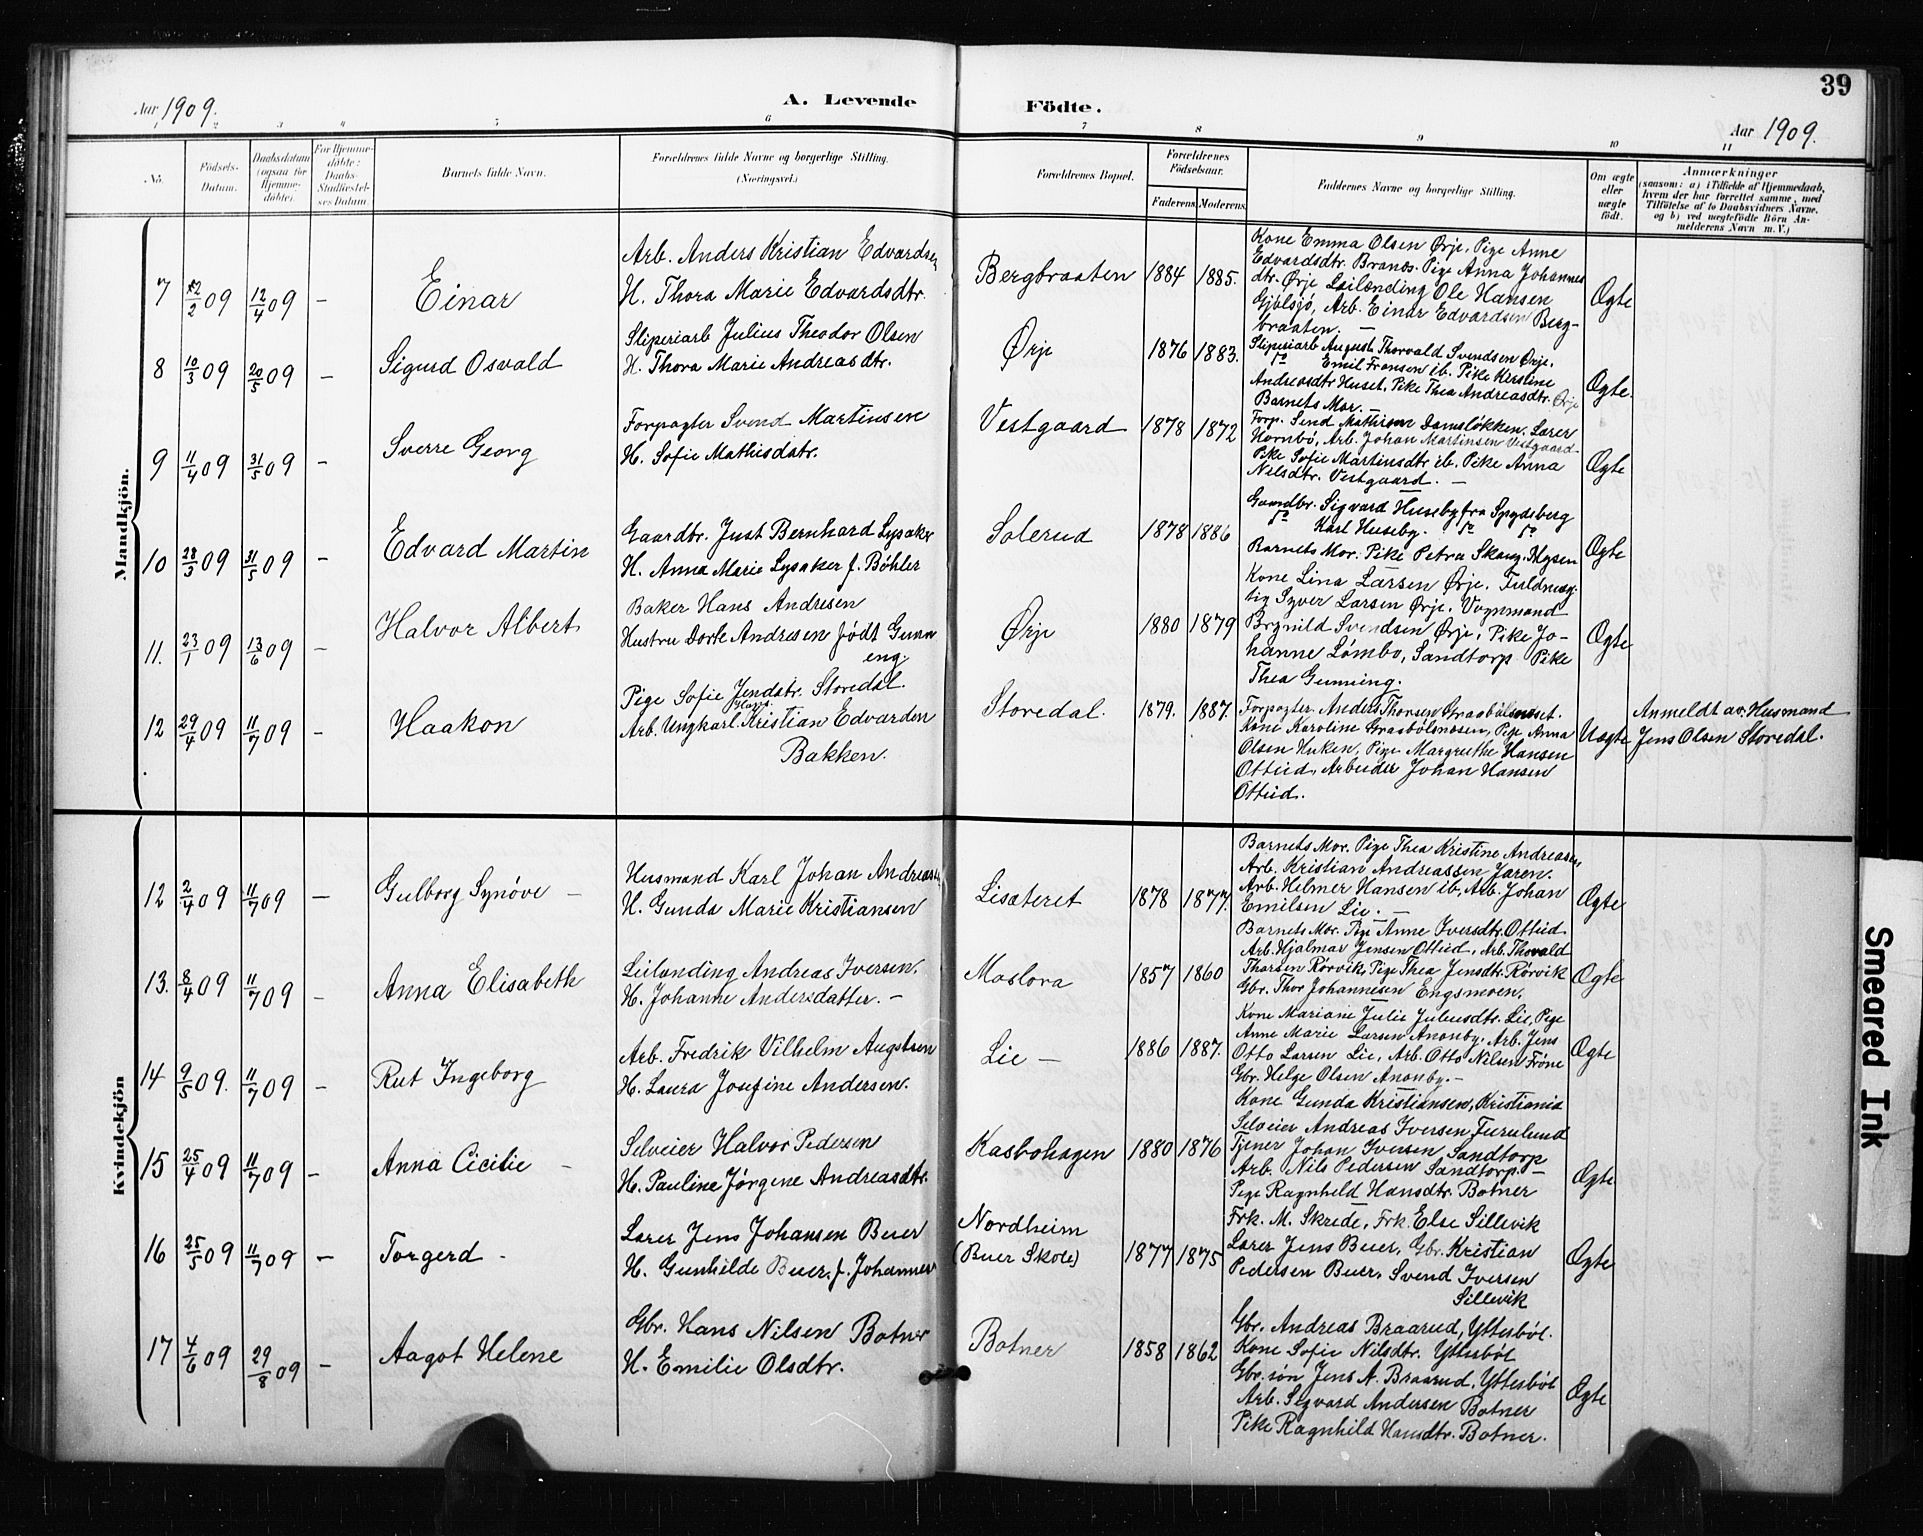 39
Aar 1909.
A. Levende Födte.
Aar 1909.
1 2 3 4 5 6 7 8 9 10 11
No.
Födsels-Datum.
Daabsdatum (ogsaa for Hjemme-döbte).
For Hjemme-döbte: Daabs-Stadfæstel-ses Datum.
Barnets fulde Navn.
Forældrenes fulde Navne og borgerlige Stilling. (Næringsvei.)
Forældrenes Bopæl.
Forældrenes Födselsaar.
Faderens Moderens.
Faddernes Navne og borgerlige Stilling.
Om ægte eller uægte födt.
Anmærkninger
(saasom: a) i Tilfælde af Hjemmedaab, hvem der har forrettet samme, med Tilföielse af to Daabsvidners Navne, og b) ved uægtefödte Börn An-melderens Navn m. V.)
Mandkjön.
7 2/2 09 12/4 09 – Einar
Arb. Anders Kristian Edvardsen
H. Thora Marie Edvardsdtr.
Bergbraaten 1884 1885.
Kone Emma Olsen Ørje, Pige Anne
Edvardsdtr. Branes. Pige Anna Johannes
dtr. Ørje Leilænding Ole Hansen
Gjølsjø, Arb. Einar Edvardsen Berg-
braaten. –
Ægte
8 10/3 09 20/5 09 – Sigurd Osvald
Sliperiarb Julius Theodor Olsen
H. Thora Marie Andreasdtr.
Ørje 1876 1883.
Sliperiarb August Thorvald Svendsen Ørje.
do Emil Fransen ib. Pike Kirstine
Andreasdtr Huset, Pike Thea Andreasdtr. Ørje
Barnets Mor. –
Ægte.
9 11/4 09 31/5 09 – Sverre Georg
Forpagter Svend Martinsen
H. Sofie Mathisdatr.
Vestgaard 1878 1872
Lærer
Hornbø, Arb. Johan Martinsen Vestgaard
Pike Sofie Martinsdtr ib. Pike Anna
Nilsdtr. Vestgaard. –
Ægte
10 28/3 09 31/5 09 – Edvard Martin
Gaardbr. Just Bernhard Lysaker
H. Anna Marie Lysaker f. Böhler
Solerud 1878 1886
Gaardbr. Sigvard Huseby fra Spydeberg
do Karl Huseby. do do
Barnets Mor. Pike Petra Skaug. Mysen
Ægte
11. 23/1 09 13/6 09 – Halvor Albert
Baker Hans Andresen
Hustru Dorte Andresen født Gunn
eng.
Ørje 1880 1879
Kone Lina Larsen Ørje. Fuldmæg-
tig Syver Larsen Ørje. Vognmand
Brynild Svendsen Ørje, Pike Jo-
hanne Lømbo, Sandtorp Pike
Thea Gunneng.
Ægte
12 29/4 09 11/7 09 – Haakon
Pige Sofie Jensdatr. Storedal.
Arb. Ungkarl Hans Kristian Edvardsen
Bakken.
Storedal. 1879. 1887.
Forpagter Anders Thorsen
Kone Karoline Grasbölsnesen, Pige Anna
Olsen Huken, Pige Margrethe Hansen
Otteid, Arbeider Johan Hansen
Otteid.
Uægte
Anmeldt av Husmand
Jens Olsen Storedal.
Kvindekjön
12 2/4 09 11/7 09 – Gulborg Synöve –
Husmand Karl Johan Andreasen
H. Gunda Marie Kristiansen
Lisæteret 1878 1877.
Barnets Mor, Pige Thea Kristine Andreasen,
Arb. Kristian Andreassen Jaren.
Arb. Helmer Hansen ib, Arb. Johan
Emilsen Lie. –
Ægte
13. 8/4 09 11/7 09 – Anna Elisabeth
Leilending Andreas Iversen.
H. Johanne Andersdatter. –
Moslora 1857 1860
Barnets Mor. Pige Anne Iversdtr. Otteid
Arb. Hjalmar Jensen Otteid, Arb. Thorvald
Thorsen Rörvik, Pige Thea Jensdtr. Rörvik
Gbr. Thor Johannesen Engsmoen.
Ægte
14 9/5 09. 11/7 09 – Rut Ingeborg
Arb. Fredrik Vilhelm Augstsen
H. Laura Josefine Andersen.
Lie – 1886 1887.
Kone Mariane Julie Juliusdtr. Lie, Pige
Anne Marie Larsen Anonby. Arb. Jens
Otto Larsen Lie, Arb. Otto Nilsen Fröne
Gbr. Helge Olsen Anonby. –
Ægte
15 25/4 09 11/7 09 – Anna Cicilie –
Selveier Halvor Pedersen
H. Pauline Jørgine Andreasdtr.
Kasbohagen 1880 1876
Kone Gunda Kristiansen, Kristiania
Selveier Andreas Iversen Furulund
Tjener Johan Iversen Sandtorp
Arb. Nils Pedersen Sandtorp. –
Pige Ragnhild Hansdtr. Botner
Ægte
16 25/5 09 11/7 09 – Torgerd –
Lærer Jens Johansen Buer
H. Gunhilde Buer, f. Johannes
Nordheim
(Buer Skole) 1877 1875
Frk. M. Skrede, Frk. Else Sillevik
Lærer Jens Buer, Gbr. Kristian
Pedersen Buer, Svend Iversen
Sillevik
Ægte
17 4/6 09 29/8 09 – Aagot Helene
Gbr. Hans Nilsen Botner
H. Emilie Olsdtr.
Botner 1858 1862
Gbr. Andreas Braarud, Ytterböl.
Kone Sofie Nilsdtr. Ytterböl
Gbr. søn Jens A. Braarud, Ytterböl
Arb. Sigvard Andersen Botner
Pike Ragnhild Hansdtr. Botner.
Ægte
Smeared Ink